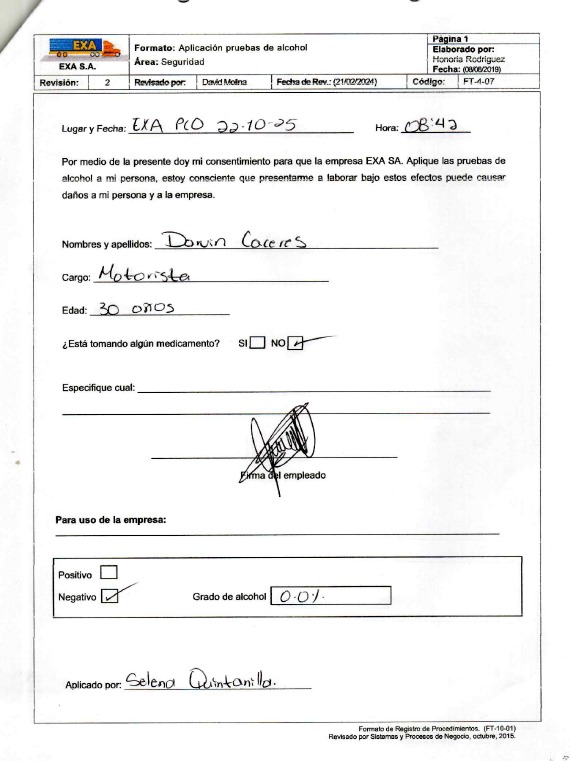 EXA
EXA S.A.
Formato: Aplicación pruebas de alcohol
Área: Seguridad
Página 1
Elaborado por:
Honoria Rodriguez
Fecha: (08/08/2019)
Revisión: 2 Revisado por: David Molina Fecha de Rev.: (21/02/2024) Código: FT-4-07
Lugar y Fecha: EXA PCO 22-10-25 Hora: 08:42
Por medio de la presente doy mi consentimiento para que la empresa EXA SA. Aplique las pruebas de
alcohol a mi persona, estoy consciente que presentarme a laborar bajo estos efectos puede causar
daños a mi persona y a la empresa.
Nombres y apellidos: Darwin Caceres
Cargo: Motorista
Edad: 30 años
¿Está tomando algún medicamento? SI NO
Especifique cual:
Firma del empleado
Para uso de la empresa:
Positivo
Negativo Grado de alcohol 0.0%.
Aplicado por: Selena Quintanilla.
Formato de Registro de Procedimientos. (FT-10-01)
Revisado por Sistemas y Procesos de Negocio, octubre, 2015.